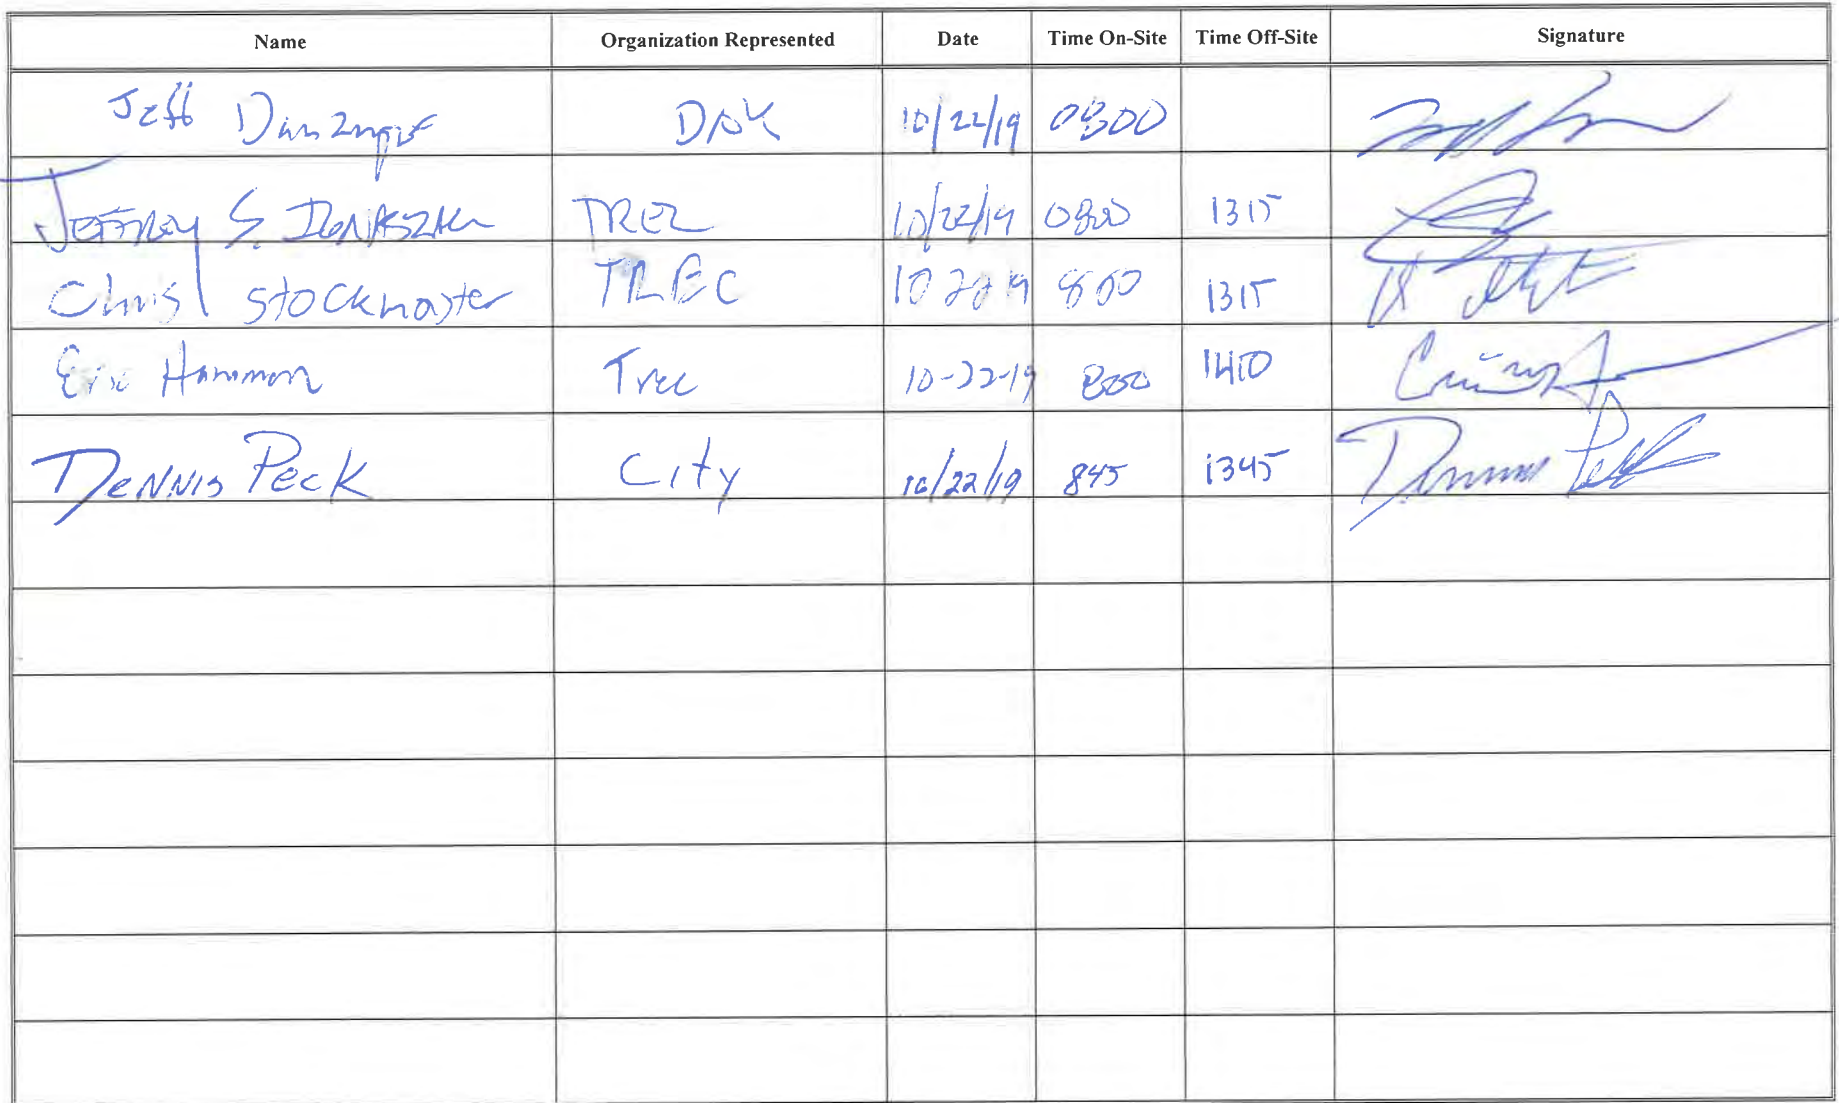 Name Organization Represented Date Time On-Site Time Off-Site Signature
Jeff 10/22/19 0800
JEFFREY S. TREC 10/22/19 0800 1315
Chris Stockmaster TREC 10 22 19 800 1315
Eric Hammon Trec 10-22-19 800 1410
Dennis Peck City 10/22/19 845 1345 Dennis Peck